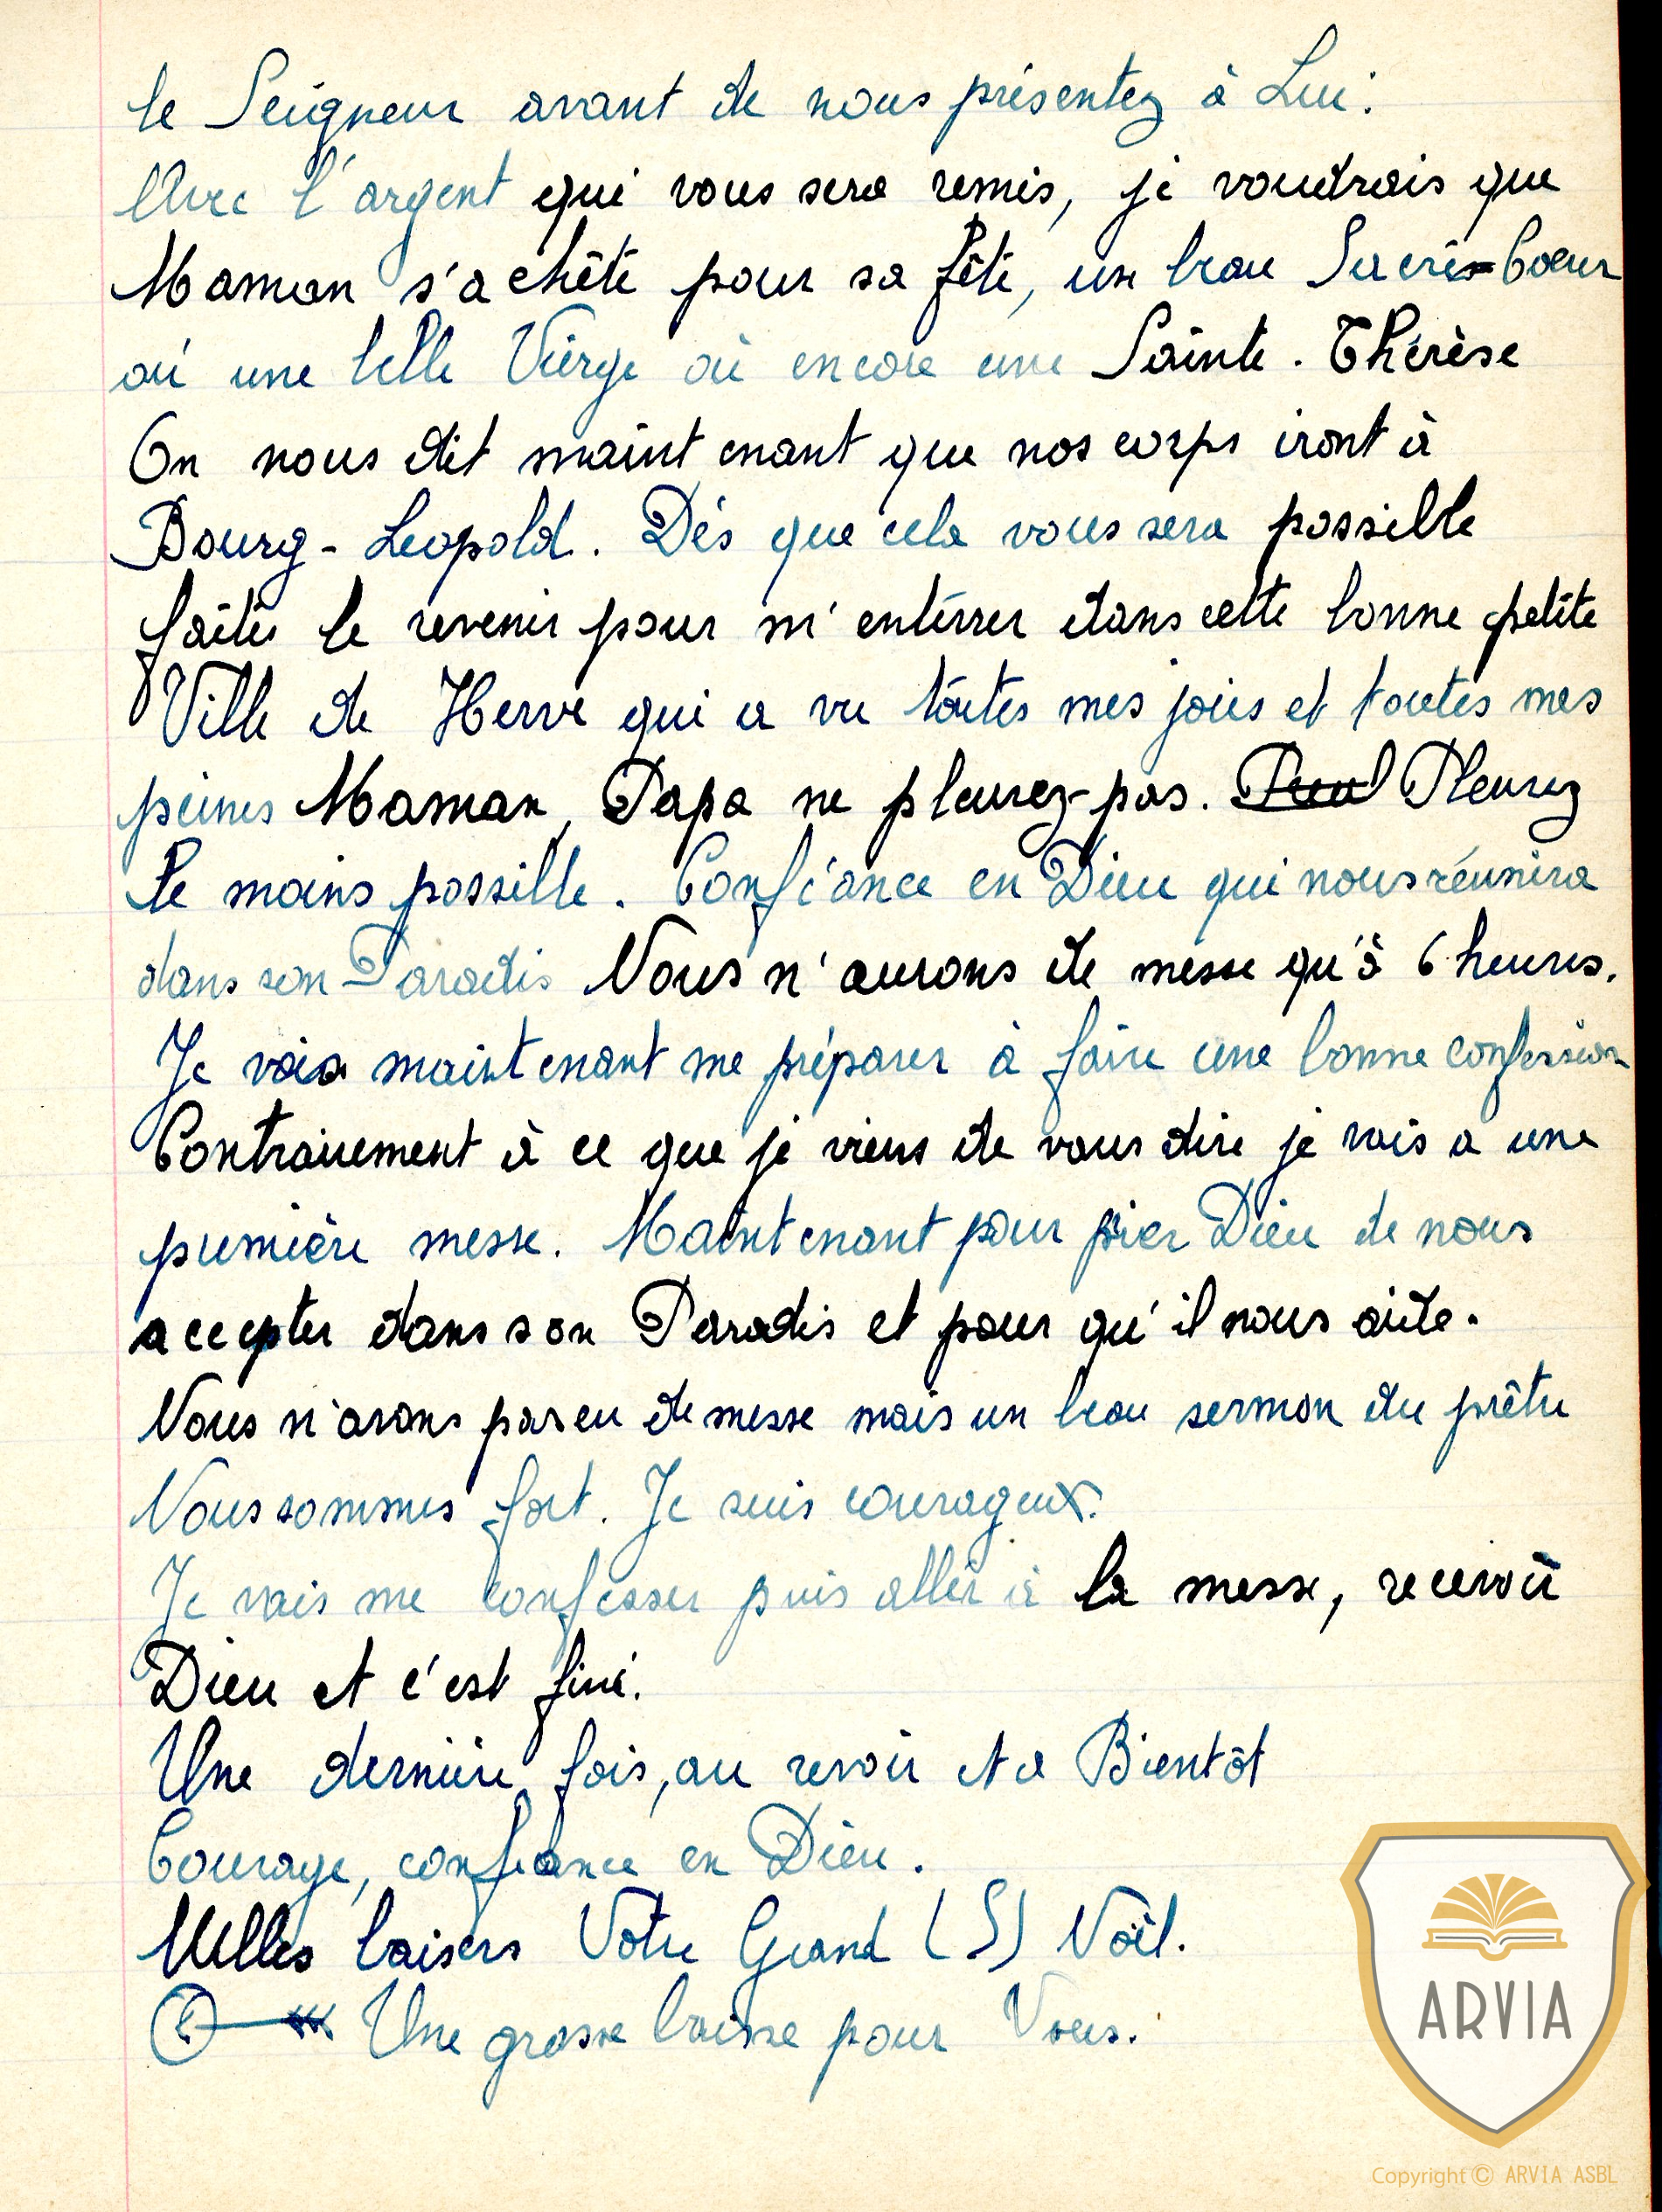 le Seigneur avant de nous présentez à Lui.
Avec l'argent qui vous sera remis, je voudrais que
Maman s'achête pour sa fête, un beau Sacré-Coeur
où une belle Vierge où encore une Sainte. Thérèse
On nous dit maintenant que nos corps iront à
Bourg-Leopold. Dés que cela vous sera possible
faites le revenir pour m'entérrer dans cette bonne petite
Ville de Herve qui a vu toutes mes joies et toutes mes
peines Maman, Papa ne pleurez-pas. Pleurez
le moins possible. Confiance en Dieu qui nous réunira
dans son Paradis Nous n'aurons de messe qu'à 6 heures.
Je vais maintenant me préparer à faire une bonne confession
Contrairement à ce que je viens de vous dire je vais a une
première messe. Maintenant pour prier Dieu de nous
accepter dans son Paradis et pour qu'il nous aide.
Nous n'avons pas eu de messe mais un beau sermon du prêtre
Nous sommes fort. Je suis courageux.
Je vais me confesser puis aller à la messe, recevoir
Dieu et c'est fini.
Une dernière fois, au revoir et a Bientôt
Courage, confiance en Dieu.
Milles baisers Votre Grand (S) Noël.
Une grosse baisse pour Vous.
ARVIA
Copyright © ARVIA ASBL